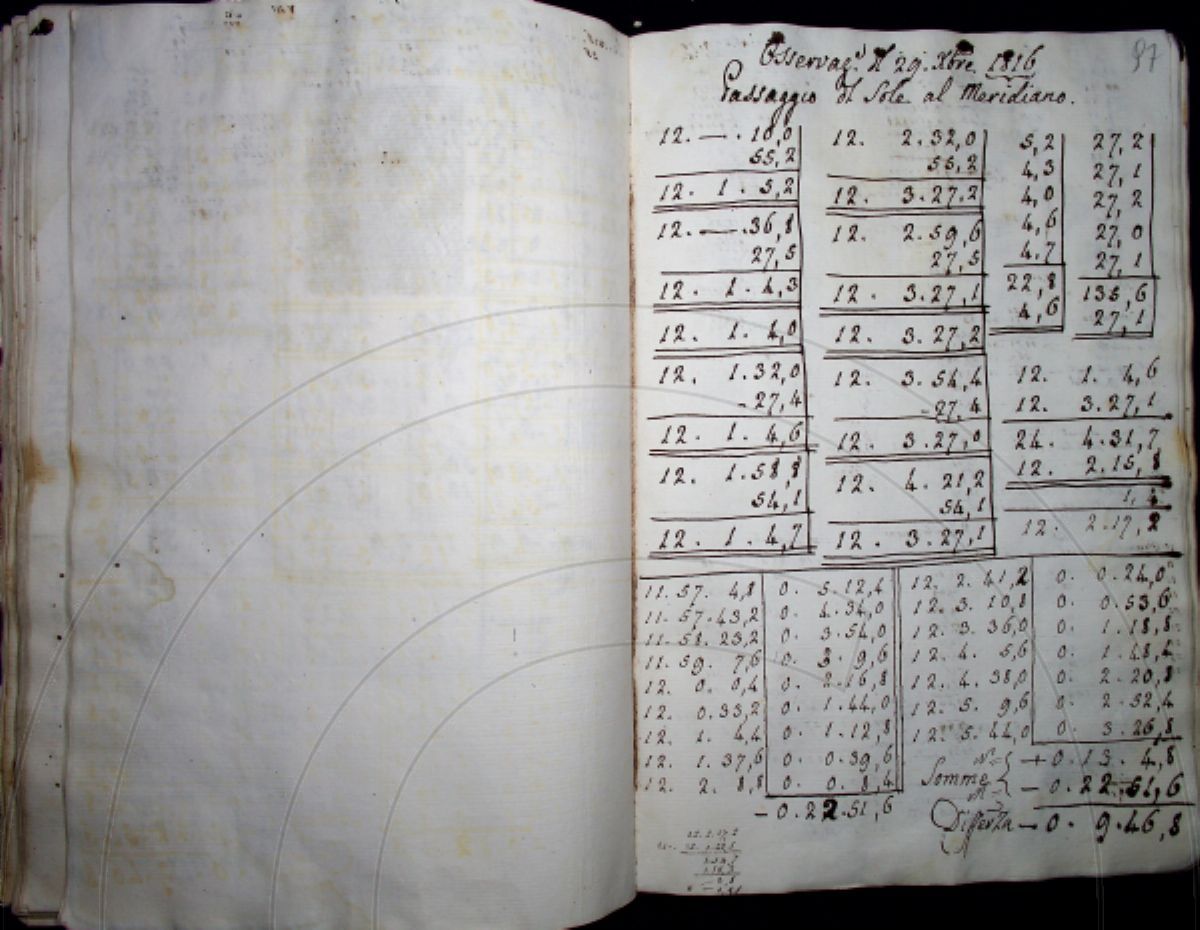 97
Osservaz.i Il 29. Xbre 1816
Passaggio di Sole al Meridiano.
12. — . 10,0
55,2
12. 1. 5,2
12. — . 36,8
27,5
12. 1. 4,3
12. 1. 4,0
12. 1. 32,0
- 27,4
12. 1. 4,6
12. 1. 58,8
54,1
12. 1. 4,7
12. 2. 32,0
55,2
12. 3. 27,2
12. 2. 59,6
27,5
12. 3. 27,1
12. 3. 27,2
12. 3. 54,4
- 27,4
12. 3. 27,0
12. 4. 21,2
54,1
12. 3. 27,1
5,2
4,3
4,0
4,6
4,7
22,8
4,6
27,2
27,1
27,2
27,0
27,1
135,6
27,1
12. 1. 4,6
12. 3. 27,1
24. 4. 31,7
12. 2. 15,8
1,4
12. 2. 17,2
11. 57. 4,8 0. 5. 12,4
11. 57. 43,2 0. 4. 34,0
11. 58. 23,2 0. 3. 54,0
11. 59. 7,6 0. 3. 9,6
12. 0. 0,4 0. 2. 16,8
12. 0. 33,2 0. 1. 44,0
12. 1. 4,4 0. 1. 12,8
12. 1. 37,6 0. 0. 39,6
12. 2. 8,8 0. 0. 8,4
- 0. 22. 51,6
12. 2. 41,2 0. 0. 24,0
12. 3. 10,8 0. 0. 53,6
12. 3. 36,0 0. 1. 18,8
12. 4. 5,6 0. 1. 48,4
12. 4. 38,0 0. 2. 20,8
12. 5. 9,6 0. 2. 52,4
12. 5. 44,0 0. 3. 26,8
Somme + 0. 13. 4,8
- 0. 22. 51,6
Differza - 0. 9. 46,8